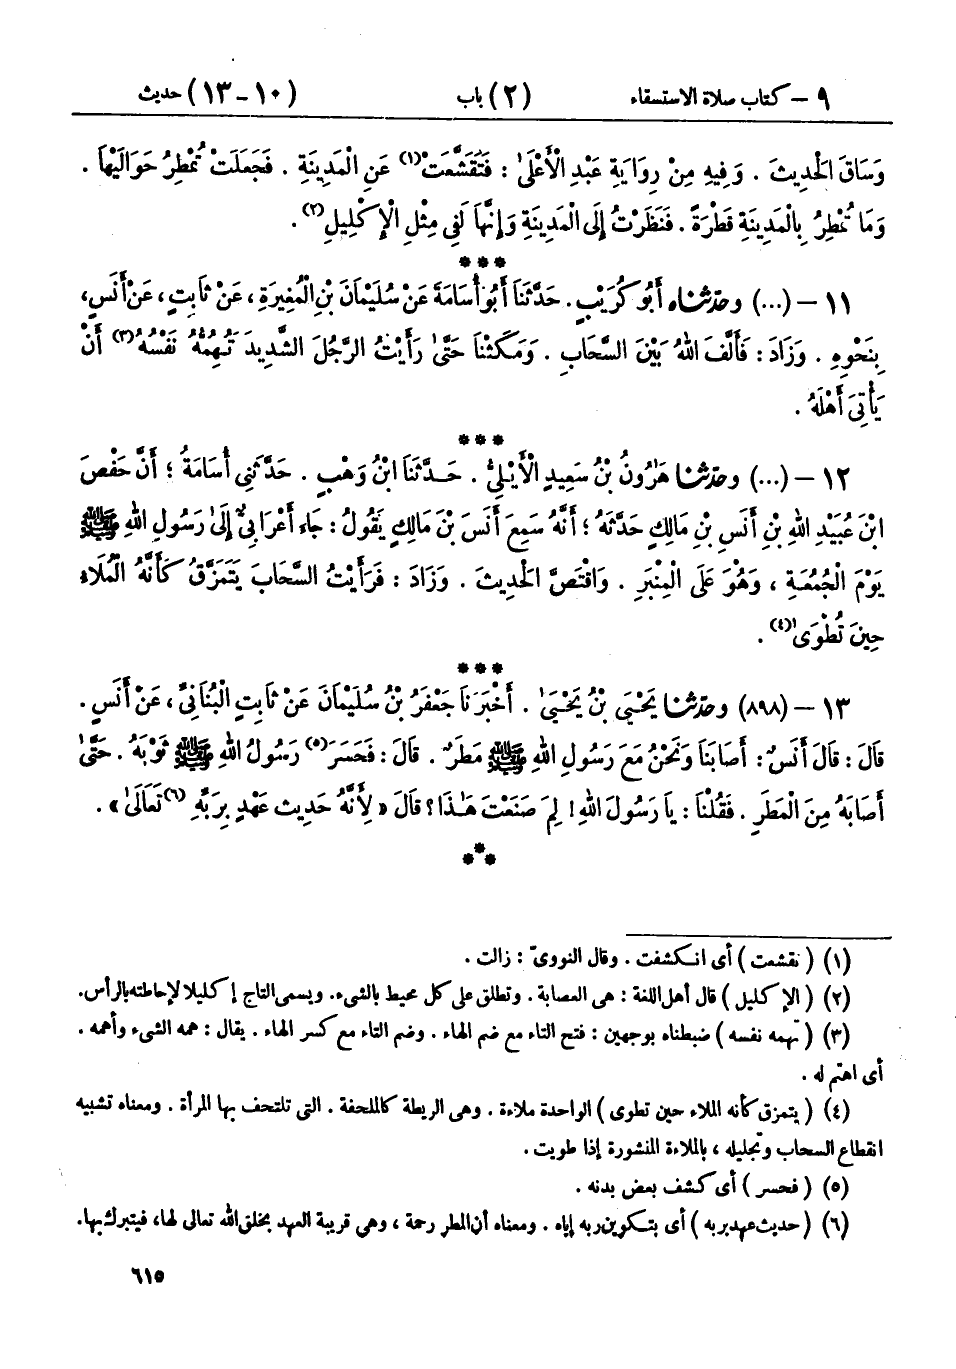 ٩ – كتاب صلاة الاستسقاء (٢) باب (١٠ – ١٣) حديث
وَسَاقَ الْحَدِيثَ . وَفِيهِ مِنْ رِوَايَةِ عَبْدِ الْأَعْلَىٰ : فَتَقَشَّعَتْ(١) عَنِ الْمَدِينَةِ . فَجَعَلَتْ تُمْطِرُ حَوَالَيْهَا .
وَمَا تُمْطِرُ بِالْمَدِينَةِ قَطْرَةً . فَنَظَرْتُ إِلَى الْمَدِينَةِ وَإِنَّهَا لَفِي مِثْلِ الْإِكْلِيلِ(٢) .
***
١١ – (...) وحَدَّثَنَاه أَبُو كُرَيْبٍ . حَدَّثَنَا أَبُو أُسَامَةَ عَنْ سُلَيْمَانَ بْنِ الْمُغِيرَةِ ، عَنْ ثَابِتٍ ، عَنْ أَنَسٍ ،
بِنَحْوِهِ . وَزَادَ : فَأَلَّفَ اللهُ بَيْنَ السَّحَابِ . وَمَكَثْنَا حَتَّىٰ رَأَيْتُ الرَّجُلَ الشَّدِيدَ تَهُمُّهُ نَفْسُهُ(٣) أَنْ
يَأْتِيَ أَهْلَهُ .
***
١٢ – (...) وحَدَّثَنَا هَٰرُونُ بْنُ سَعِيدٍ الْأَيْلِيُّ . حَدَّثَنَا ابْنُ وَهْبٍ . حَدَّثَنِي أُسَامَةُ ؛ أَنَّ حَفْصَ
ابْنَ عُبَيْدِ اللهِ بْنِ أَنَسِ بْنِ مَالِكٍ حَدَّثَهُ ؛ أَنَّهُ سَمِعَ أَنَسَ بْنَ مَالِكٍ يَقُولُ : جَاءَ أَعْرَابِيٌّ إِلَىٰ رَسُولِ اللهِ ﷺ
يَوْمَ الْجُمُعَةِ ، وَهُوَ عَلَى الْمِنْبَرِ . وَاقْتَصَّ الْحَدِيثَ . وَزَادَ : فَرَأَيْتُ السَّحَابَ يَتَمَزَّقُ كَأَنَّهُ الْمُلَاءُ
حِينَ تُطْوَىٰ(٤) .
***
١٣ – (٨٩٨) وحَدَّثَنَا يَحْيَىٰ بْنُ يَحْيَىٰ . أَخْبَرَنَا جَعْفَرُ بْنُ سُلَيْمَانَ عَنْ ثَابِتٍ الْبُنَانِيِّ ، عَنْ أَنَسٍ .
قَالَ : قَالَ أَنَسٌ : أَصَابَنَا وَنَحْنُ مَعَ رَسُولِ اللهِ ﷺ مَطَرٌ . قَالَ : فَحَسَرَ(٥) رَسُولُ اللهِ ﷺ ثَوْبَهُ . حَتَّىٰ
أَصَابَهُ مِنَ الْمَطَرِ . فَقُلْنَا : يَا رَسُولَ اللهِ ! لِمَ صَنَعْتَ هَٰذَا ؟ قَالَ « لِأَنَّهُ حَدِيثُ عَهْدٍ بِرَبِّهِ (٦) تَعَالَىٰ » .
***
(١) ( تقشعت ) أى انكشفت . وقال النووىّ : زالت .
(٢) ( الإكليل ) قال أهل اللغة : هى العصابة . وتطلق على كل محيط بالشىء. ويسمى التاج إكليلا لإحاطته بالرأس.
(٣) ( تهمه نفسه ) ضبطناه بوجهين : فتح التاء مع ضم الهاء . وضم التاء مع كسر الهاء . يقال : همه الشىء وأهمه .
أى اهتم له .
(٤) ( يتمزق كأنه الملاء حين تطوى ) الواحدة ملاءة . وهى الريطة كالملحفة . التى تلتحف بها المرأة . ومعناه تشبيه
انقطاع السحاب وتجليله ، بالملاءة المنشورة إذا طويت .
(٥) ( فحسر ) أى كشف بعض بدنه .
(٦) ( حديث عهد بربه ) أى بتكوين ربه إياه . ومعناه أن المطر رحمة ، وهى قريبة العهد بخلق الله تعالى لها، فيتبرك بها.
٦١٥